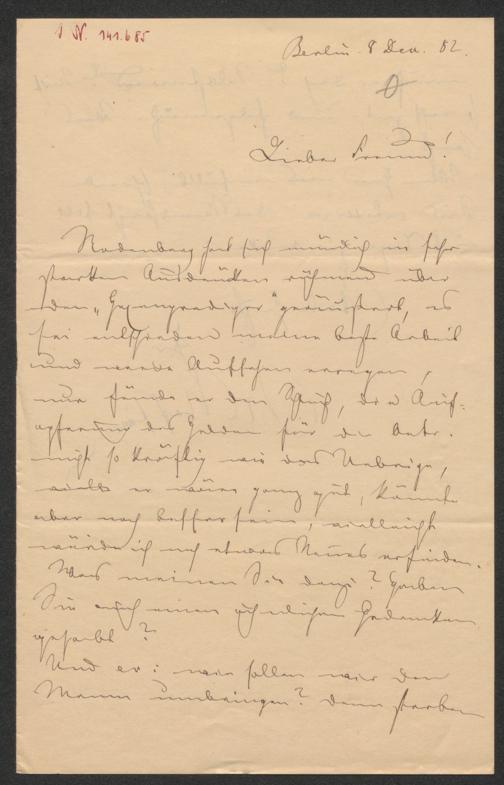 I.N. 141.685
Berlin 8 Dec. 82.
Lieber Freund!
Rodenberg hat sich mündlich in sehr
starken Ausdrücken rühmend über
den „Hexenprediger“ geäußert, es
sei entschieden meine beste Arbeit
und werde Aufsehen erregen,
nur fände er den Schluß, die Auf-
opferung des Helden für die
nicht so kräftig wie das Uebrige,
er wäre ganz gut, könnte
aber noch besser sein, vielleicht
würde ich noch etwas Neues erfinden.
Was meinen Sie dazu? Haben
Sie auch einen ähnlichen Gedanken
gehabt?
Und er: wie sollen wir den
Mann umbringen? denn sterben